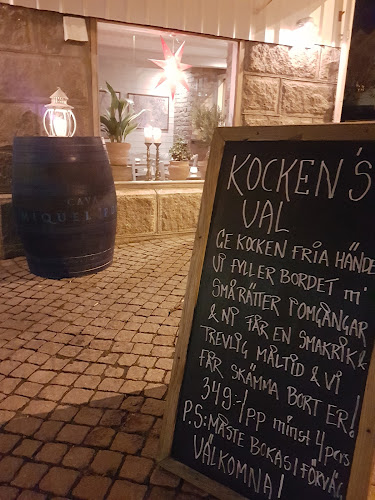 KOCKEN'S
VAL
GE KOCKEN FRIA HÄNDE
VI FYLLER BORDET M'
SMÅRÄTTER I OMGÅNGAR
& NI FÅR EN SMAKRIK &
TREVLIG MÅLTID & VI
FÅR SKÄMMA BORT ER!
349:-/pp minst 4 pers
P.S: MÅSTE BOKAS I FÖRVÄG
VÄLKOMNA!
CAVA
MIQUEL